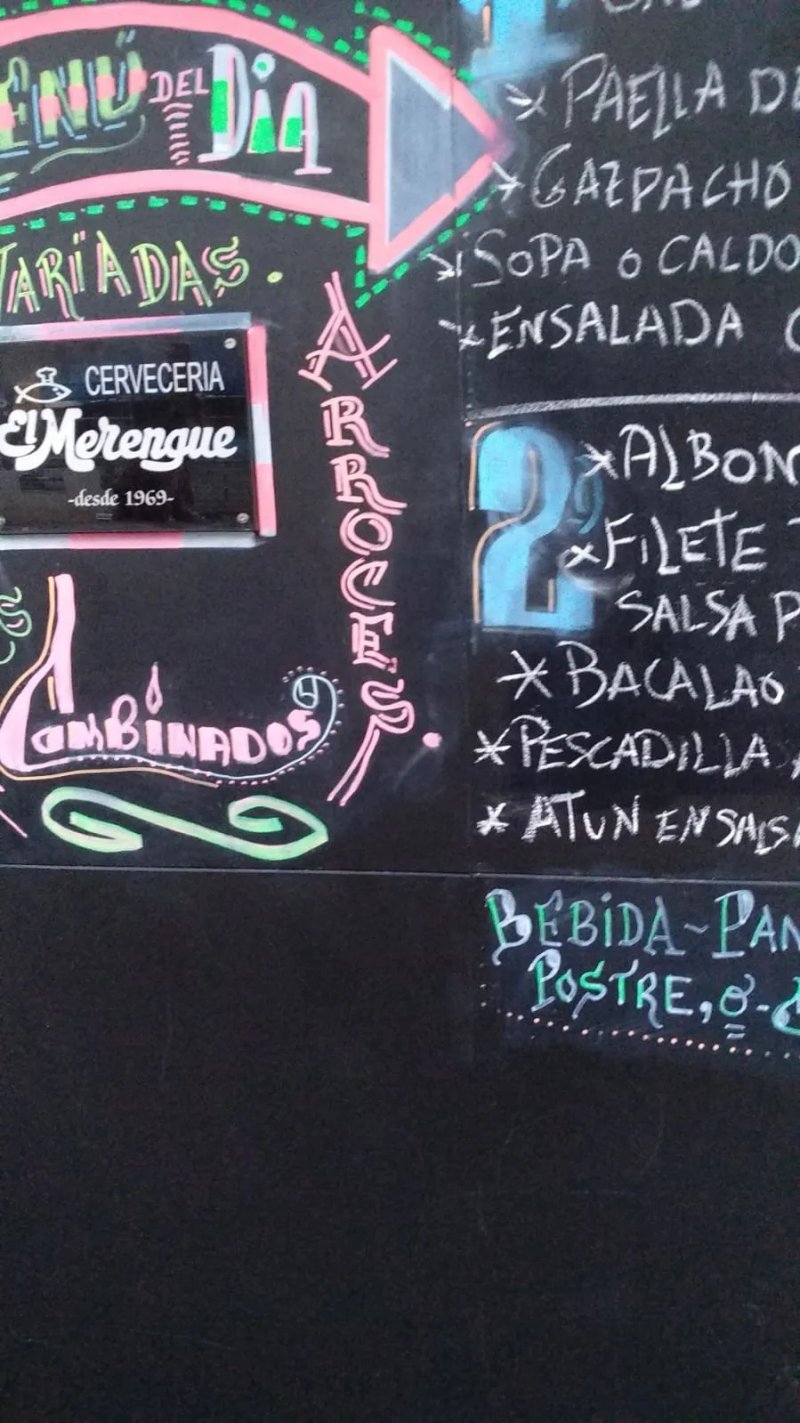 MENÚ DEL DÍA
VARIADAS.
CERVECERIA
El Merengue
-desde 1969-
ARROCES.
COMBINADOS
PAELLA DE
GAZPACHO
SOPA o CALDO
ENSALADA
2º
ALBON
FILETE
SALSA P
BACALAO
PESCADILLA
ATUN EN SALSA
BEBIDA~PAN
POSTRE, o-